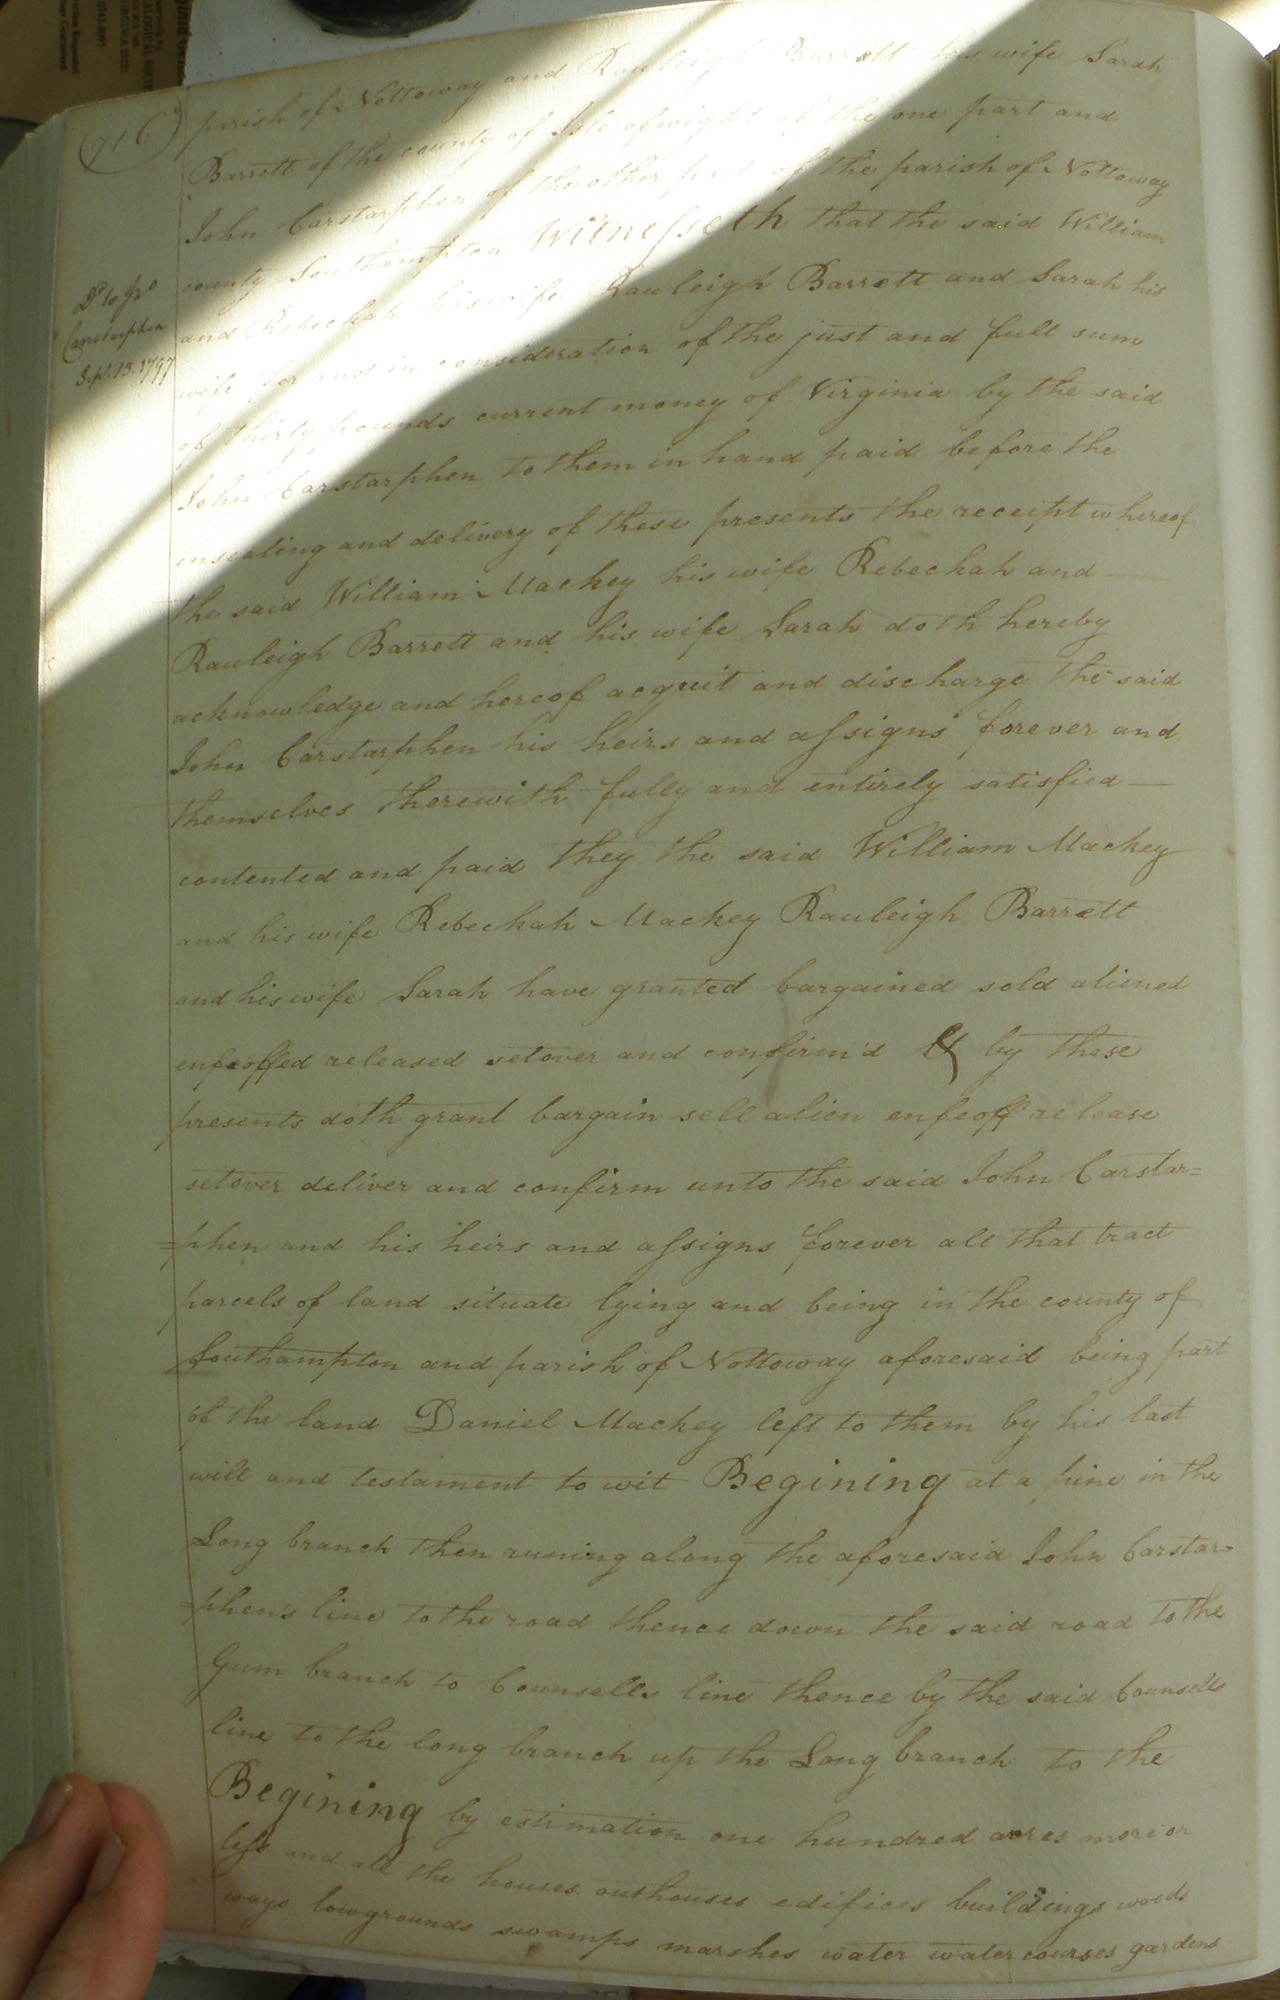 (716)
parish of Nottoway and Rauleigh Barrett his wife Sarah
Barrett of the county of Isle of wight of the one part and
John Carstarphen of the other part of the parish of Nottoway
county Southampton Witnesseth that the said William
and Rebeckah his wife Rauleigh Barrett and Sarah his
wife for and in consideration of the just and full sum
of thirty pounds current money of Virginia by the said
John Carstarphen to them in hand paid before the
ensealing and delivery of these presents the receipt whereof
the said William Mackey his wife Rebeckah and
Rauleigh Barrett and his wife Sarah doth hereby
acknowledge and hereof acquit and discharge the said
John Carstarphen his heirs and assigns forever and
themselves therewith fully and entirely satisfied
contented and paid they the said William Mackey
and his wife Rebeckah Mackey Rauleigh Barrett
and his wife Sarah have granted bargained sold aliened
enfeoffed released setover and confirm'd & by these
presents doth grant bargain sell alien enfeoff release
setover deliver and confirm unto the said John Carstar=
=phen and his heirs and assigns forever all that tract
parcels of land situate lying and being in the county of
Southampton and parish of Nottoway aforesaid being part
of the land Daniel Mackey left to them by his last
will and testament to wit Begining at a pine in the
Long branch then runing along the aforesaid John Carstar=
=phen's line to the road thence down the said road to the
Gum branch to Counsells line thence by the said Counsells
line to the long branch up the Long branch to the
Begining by estimation one hundred acres more or
less and all the houses outhouses edifices buildings woods
ways lowgrounds swamps marshes water watercourses gardens
Dd. to Jno
Carstarphen
Sept. 13. 1797